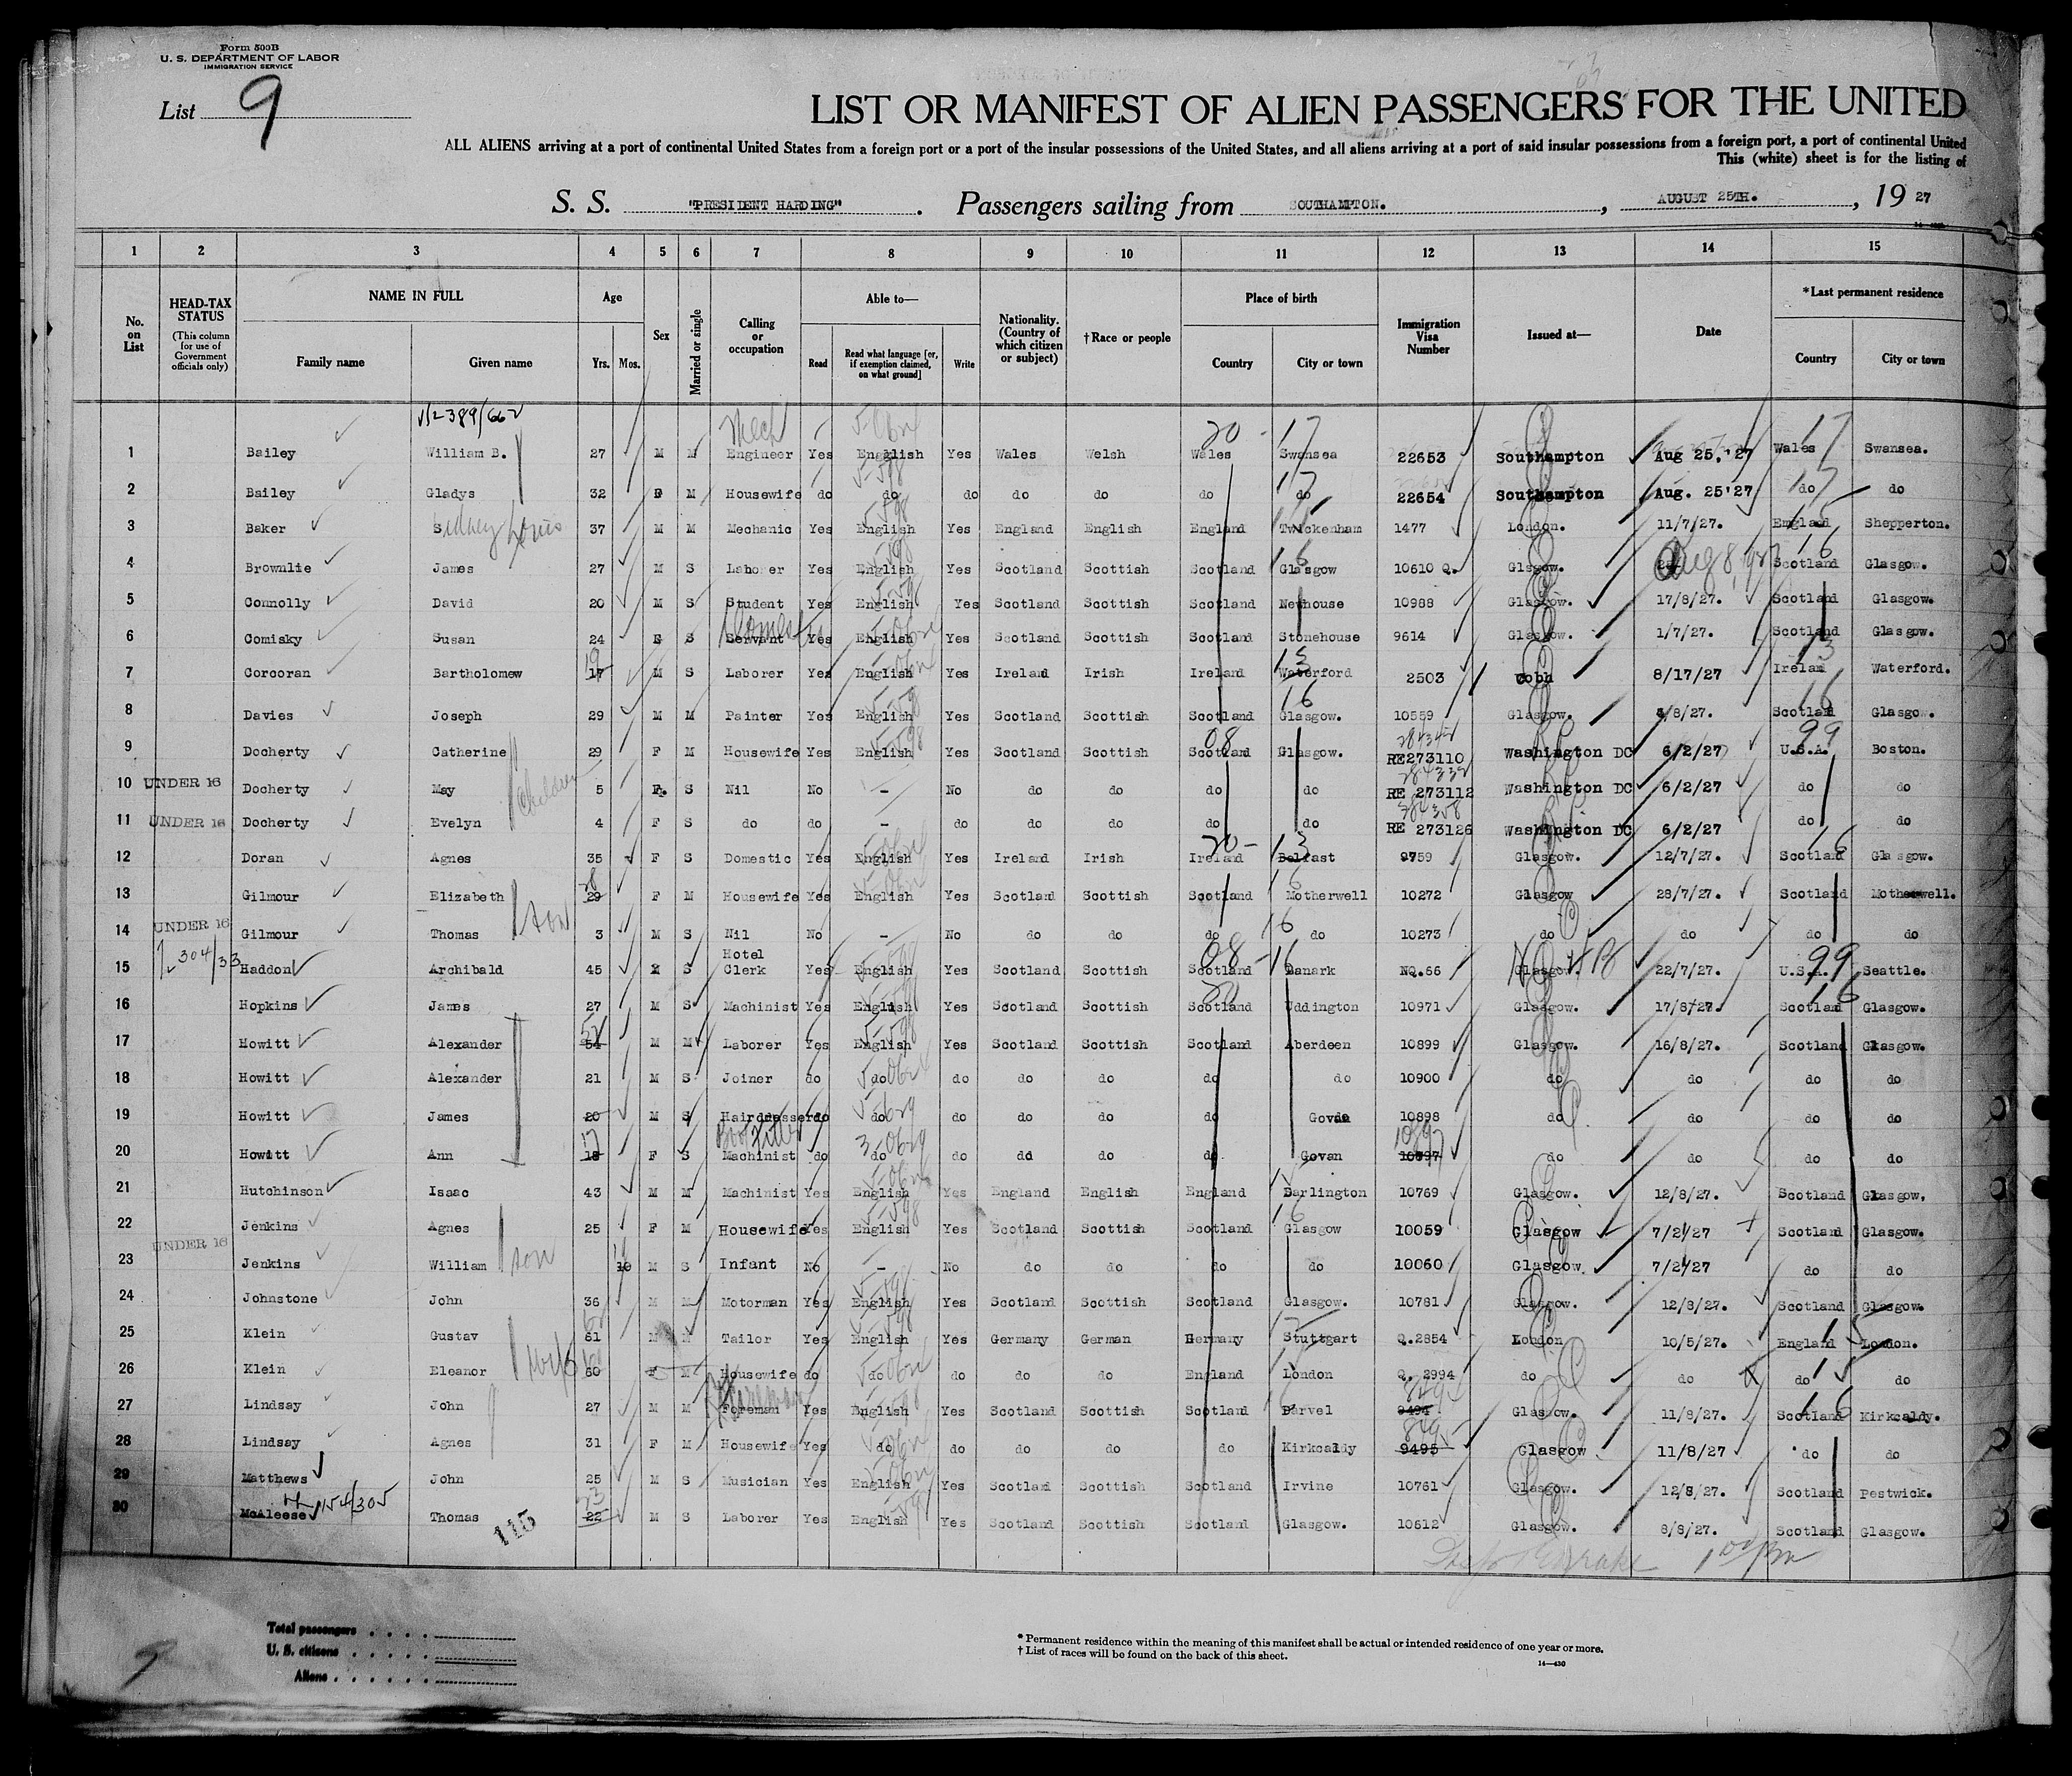 Form 500B
U. S. DEPARTMENT OF LABOR
IMMIGRATION SERVICE
List 9
LIST OR MANIFEST OF ALIEN PASSENGERS FOR THE UNITED
ALL ALIENS arriving at a port of continental United States from a foreign port or a port of the insular possessions of the United States, and all aliens arriving at a port of said insular possessions from a foreign port, a port of continental United
This (white) sheet is for the listing of
S. S. "PRESIDENT HARDING". Passengers sailing from SOUTHAMPTON., AUGUST 25TH., 19 27
1 2 3 4 5 6 7 8 9 10 11 12 13 14 15
No. on List
HEAD-TAX STATUS
(This column for use of Government officials only)
NAME IN FULL
Family name
Given name
Age
Yrs. Mos.
Sex
Married or single
Calling or occupation
Able to—
Read
Read what language [or, if exemption claimed, on what ground]
Write
Nationality. (Country of which citizen or subject)
†Race or people
Place of birth
Country
City or town
Immigration Visa Number
Issued at—
Date
*Last permanent residence
Country
City or town
1 Bailey William B. 27 M M Mech Engineer Yes English Yes Wales Welsh Wales Swansea 22653 Southampton Aug 25,'27 Wales Swansea.
2 Bailey Gladys 32 F M Housewife do do do do do do do 22654 Southampton Aug. 25'27 do do
3 Baker Sidney Louis 37 M M Mechanic Yes English Yes England English England Twickenham 1477 London. 11/7/27. England Shepperton.
4 Brownlie James 27 M S Laborer Yes English Yes Scotland Scottish Scotland Glasgow 10610 Q. Glsgow. Aug 8, 1927 Scotland Glasgow.
5 Connolly David 20 M S Student Yes English Yes Scotland Scottish Scotland Newhouse 10988 Glasgow. 17/8/27. Scotland Glasgow.
6 Comisky Susan 24 F S Servant Yes English Yes Scotland Scottish Scotland Stonehouse 9614 Glasgow. 1/7/27. Scotland Glasgow.
7 Corcoran Bartholomew 17 19 M S Laborer Yes English Yes Ireland Irish Ireland Waterford 2503 Cobh 8/17/27 Ireland Waterford.
8 Davies Joseph 29 M M Painter Yes English Yes Scotland Scottish Scotland Glasgow. 10559 Glasgow. /8/27. Scotland Glasgo.
9 Docherty Catherine 29 F M Housewife Yes English Yes Scotland Scottish Scotland Glasgow. RE273110 Washington DC 6/2/27 U.S.A. Boston.
10 UNDER 16 Docherty May children 5 F. S Nil No — No do do do do RE 273112 Washington DC 6/2/27 do do
11 UNDER 16 Docherty Evelyn 4 F S do do - do do do do do RE 273126 Washington DC 6/2/27 do do
12 Doran Agnes 35 F S Domestic Yes English Yes Ireland Irish Ireland Belfast 9759 Glasgow. 12/7/27. Scotland Glasgow.
13 Gilmour Elizabeth 29 28 F M Housewife Yes English Yes Scotland Scottish Scotland Motherwell 10272 Glasgow 28/7/27. Scotland Motherwell.
14 UNDER 16 Gilmour Thomas son 3 M S Nil No — No do do do do 10273 do do do do
15 Haddon Archibald 45 M S Hotel Clerk Yes English Yes Scotland Scottish Scotland Lanark NQ.66 Glasgow. 22/7/27. U.S.A. Seattle.
16 Hopkins James 27 M S Machinist Yes English Yes Scotland Scottish Scotland Uddington 10971 Glasgow. 17/8/27. Scotland Glasgow.
17 Howitt Alexander 54 M M Laborer Yes English Yes Scotland Scottish Scotland Aberdeen 10899 Glasgow. 16/8/27. Scotland Glasgow.
18 Howitt Alexander 21 M S Joiner do do do do do do do 10900 do do do do
19 Howitt James 20 M S Hairddesser do do do do do do Govan 10898 do do do do
20 Howitt Ann 18 17 F S Machinist do do do dd do do Govan 10897 do do do do
21 Hutchinson Isaac 43 M M Machinist Yes English Yes England English England Darlington 10769 Glasgow. 12/8/27. Scotland Glasgow.
22 Jenkins Agnes 25 F M Housewife Yes English Yes Scotland Scottish Scotland Glasgow 10059 Glasgow 7/21/27 Scotland Glasgow.
23 UNDER 16 Jenkins William son 10 11 M S Infant No — No do do do do 10060 Glasgow. 7/21/27 do do
24 Johnstone John 36 M M Motorman Yes English Yes Scotland Scottish Scotland Glasgow. 10781 Glasgow. 12/8/27. Scotland Glasgow.
25 Klein Gustav 61 M M Tailor Yes English Yes Germany German Germany Stuttgart Q.2854 London 10/5/27. England London.
26 Klein Eleanor wife 60 F M Housewife do do do do do England London Q. 2994 do do do do
27 Lindsay John 27 M M Foreman Yes English Yes Scotland Scottish Scotland Darvel 9494 Glasgow. 11/8/27. Scotland Kirkcaldy.
28 Lindsay Agnes 31 F M Housewife Yes do do do do do Kirkcaldy 9495 Glasgow 11/8/27 do do
29 Matthews John 25 M S Musician Yes English Yes Scotland Scottish Scotland Irvine 10761 Glasgow. 12/8/27. Scotland Pestwick.
30 McAleese Thomas 22 23 M S Laborer Yes English Yes Scotland Scottish Scotland Glasgow. 10612 Glasgow. 8/8/27. Scotland Glasgow.
115
Total passengers
U. S. citizens
Aliens
* Permanent residence within the meaning of this manifest shall be actual or intended residence of one year or more.
† List of races will be found on the back of this sheet.
14—430
9